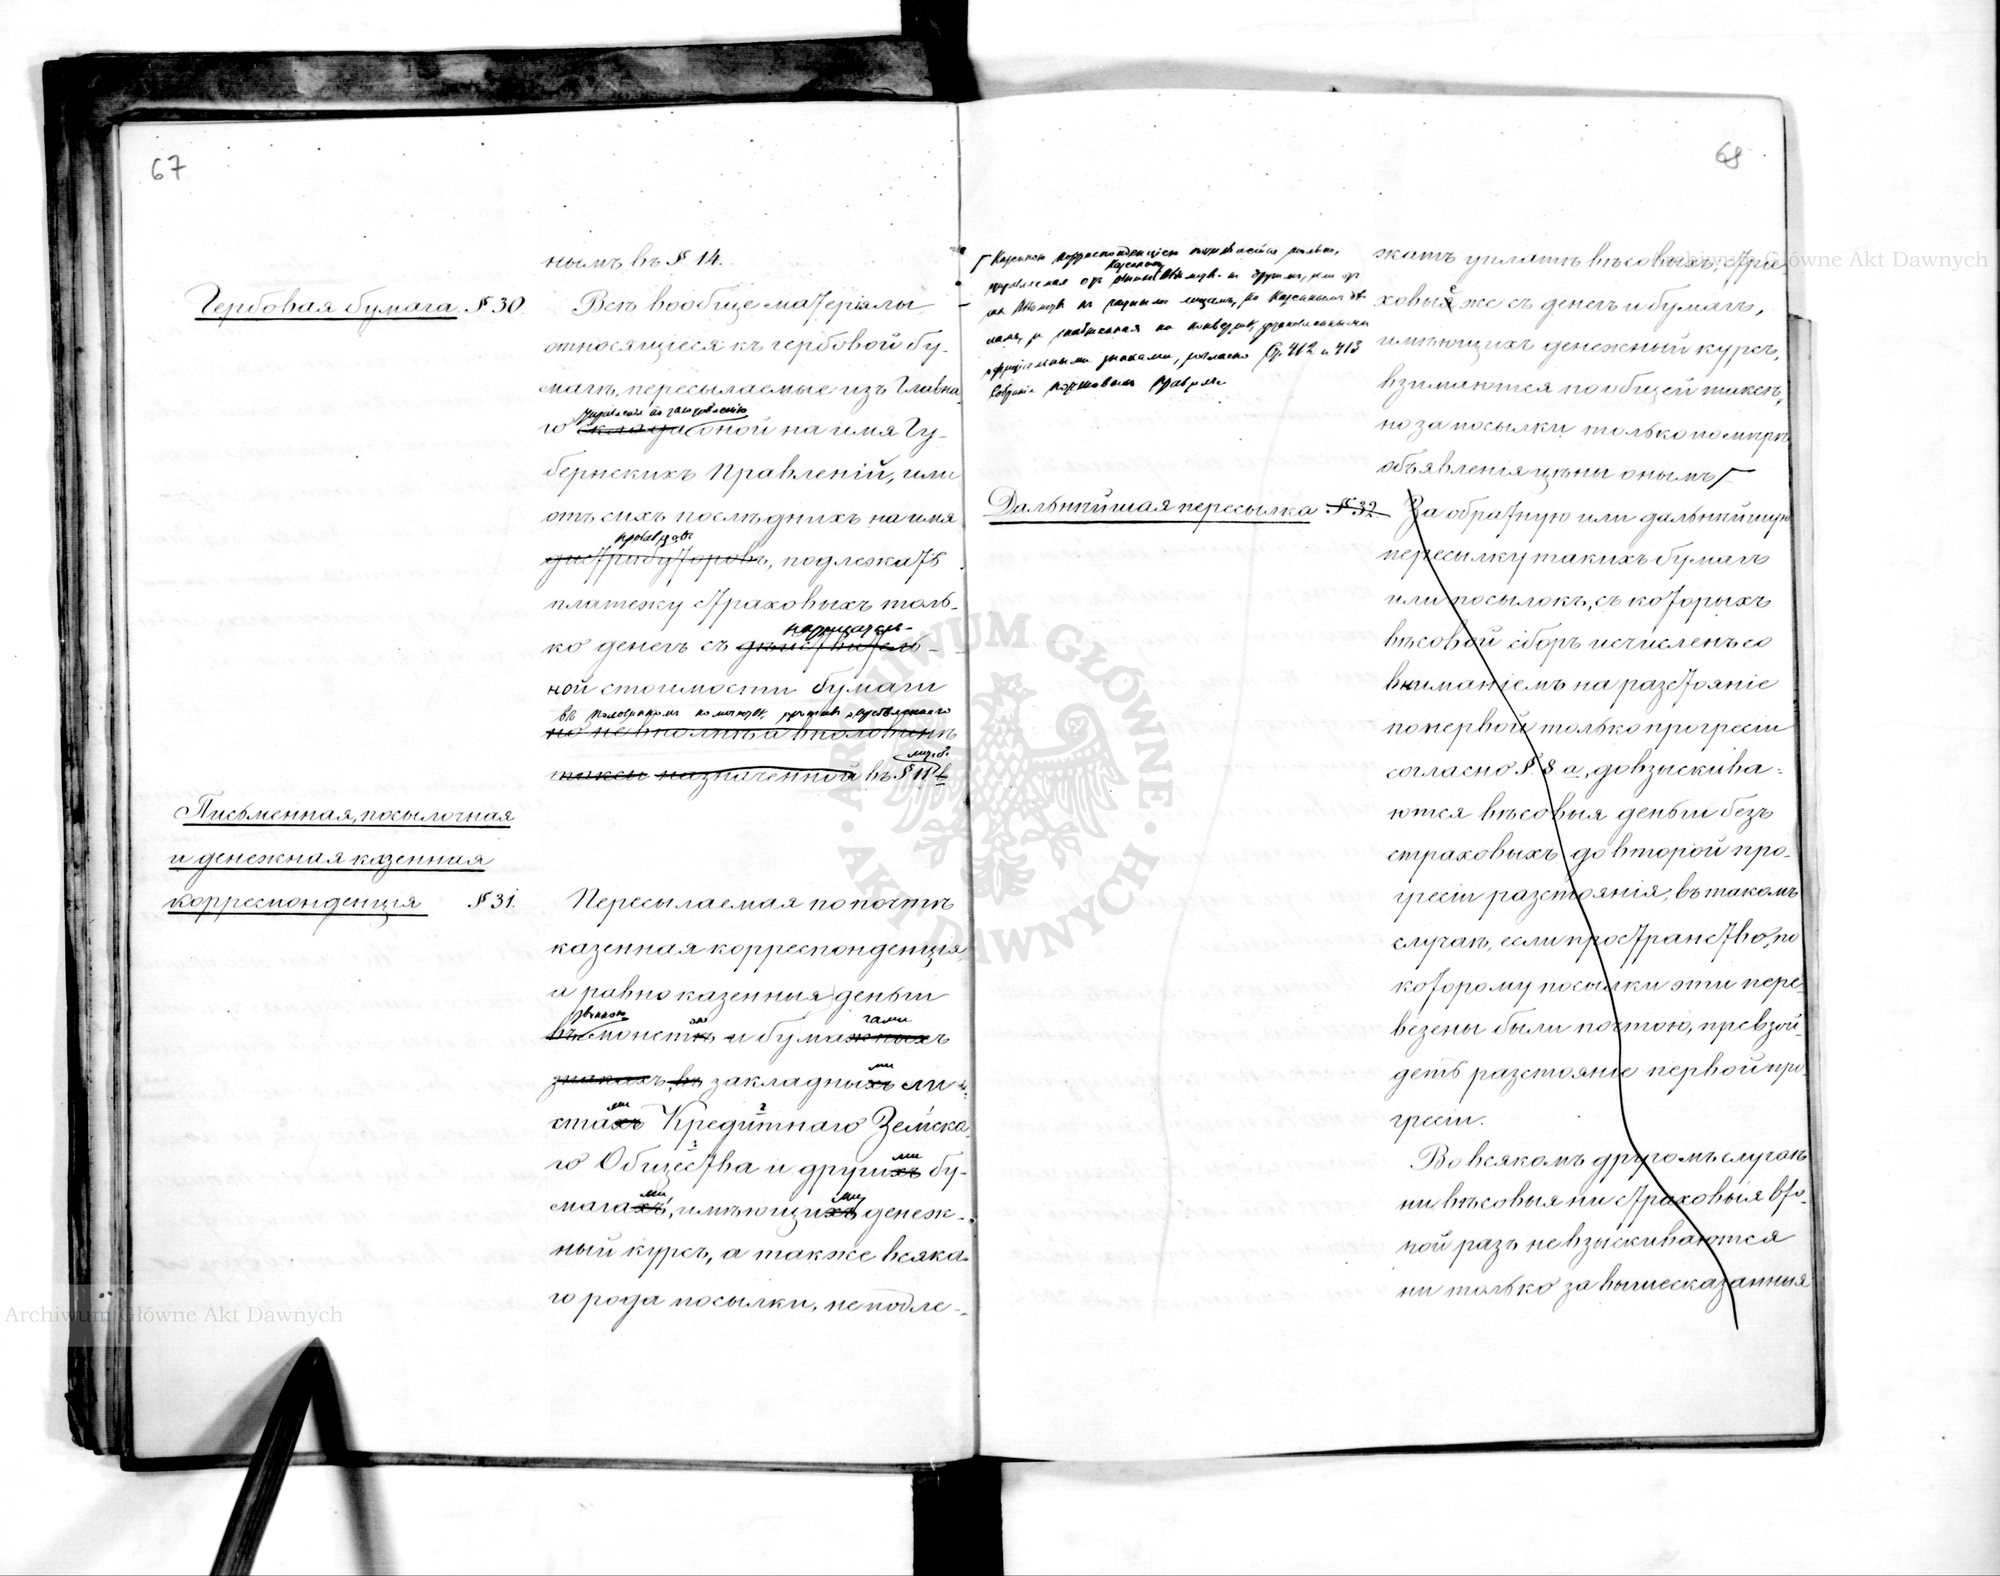 67
нымъ въ § 14.
Гербовая бумага § 30.
Всѣ вообще матеріялы
относящіеся къ гербовой бу-
магѣ, пересылаемые изъ Главна-
го склада оной на имя Гу-
бернскихъ Правленій, или
отъ сихъ послѣднихъ на имя
дистрибуторовъ, подлежатъ
платежу страховыхъ толь-
нарицатель-
ко денегъ съ дѣйствитель-
ной стоимости бумаги
но не вполнѣ а вполовинѣ
таксы назначенной въ § 11
Письменная, посылочная
и денежная казенная
корреспонденція § 31.
Пересылаемая по почтѣ
казенная корреспонденція,
а равно казенныя деньги
звонкою
ою
гами
въ монетѣ и бумажныхъ
ми
знакахъ, въ закладныхъ ли-
ми
стахъ Кредитнаго Земска-
ми
го Общества и другихъ бу-
ми
ми
магахъ, имѣющихъ денеж-
ный курсъ, а также всяка-
го рода посылки, не подле-
68
Казенною корреспонденціею
казенными знаками, согласно Ст. 412 и 413
жатъ уплатѣ вѣсовыхъ; стра-
ховыя же съ денегъ и бумагъ,
имѣющихъ денежный курсъ,
взимаются по общей таксѣ,
но за посылки только по мѣрѣ
объявленія цѣны онымъ
Дальнѣйшая пересылка § 32
За обратную или дальнѣйшую
пересылку такихъ бумагъ
или посылокъ, съ которыхъ
вѣсовой сборъ исчисленъ со
вниманіемъ на разстояніе
по первой только прогресіи
согласно §. 8. а, довзыскива-
ются вѣсовыя деньги безъ
страховыхъ до второй про-
гресіи разстоянія, въ такомъ
случаѣ, если пространство, по
которому посылки эти пере-
везены были почтою, превзой-
детъ разстояніе первой про-
гресіи.
Во всякомъ другомъ случаѣ
ни вѣсовыя ни страховыя вто-
рой разъ не взыскиваются
ни только за вышесказанныя
Archiwum Główne Akt Dawnych
Archiwum Główne Akt Dawnych
ARCHIWUM GŁÓWNE AKT DAWNYCH